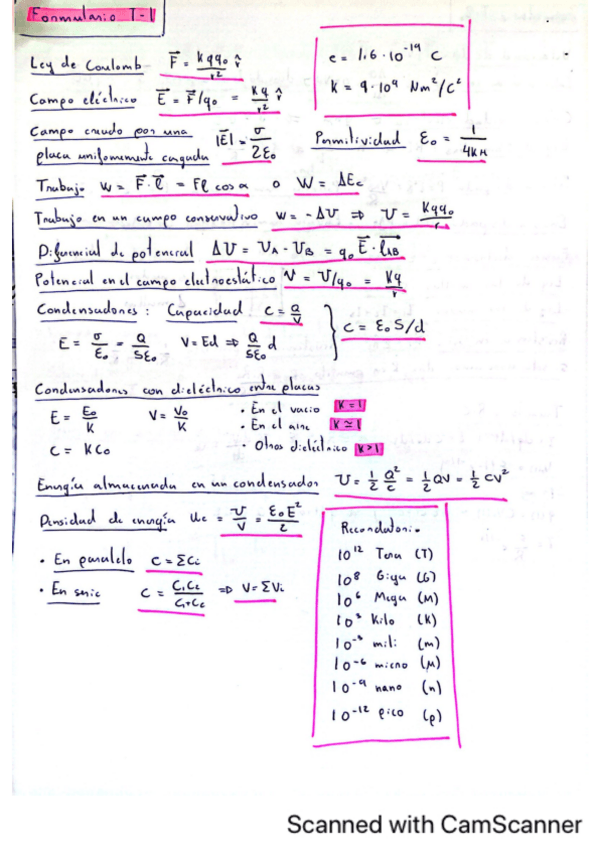 Formulario T-1
Ley de Coulomb F⃗ = Kqq₀/r² r̂
e = 1.6 · 10⁻¹⁹ C
K = 9·10⁹ Nm²/C²
Campo eléctrico E⃗ = F⃗/q₀ = Kq/r² r̂
Campo creado por una placa uniformemente cargada |E⃗| = σ/2ε₀
Permitividad ε₀ = 1/4Kπ
Trabajo W = F⃗·l⃗ = Fl cos α o W = ΔEc
Trabajo en un campo conservativo W = -ΔU ⇒ U = Kqq₀/r
Diferencial de potencial ΔU = U_A - U_B = q₀ E⃗ · l⃗_AB
Potencial en el campo electroestático V = U/q₀ = Kq/r
Condensadores : Capacidad C = Q/V
E = σ/ε₀ = Q/Sε₀ V = Ed ⇒ Q/Sε₀ d } C = ε₀ S/d
Condensadores con dieléctrico entre placas
E = E₀/K V = V₀/K
· En el vacio K = 1
· En el aire K ≃ 1
C = KC₀
· Otros dieléctrico K > 1
Energía almacenada en un condensador U = 1/2 Q²/C = 1/2 QV = 1/2 CV²
Densidad de energía Ue = U/V = ε₀E²/2
· En paralelo C = ΣCi
· En serie C = C₁C₂/C₁+C₂ ⇒ V = ΣVi
Recordatorio:
10¹² Tera (T)
10⁸ Giga (G)
10⁶ Mega (M)
10³ Kilo (K)
10⁻³ mili (m)
10⁻⁶ micro (μ)
10⁻⁹ nano (n)
10⁻¹² pico (p)
Scanned with CamScanner